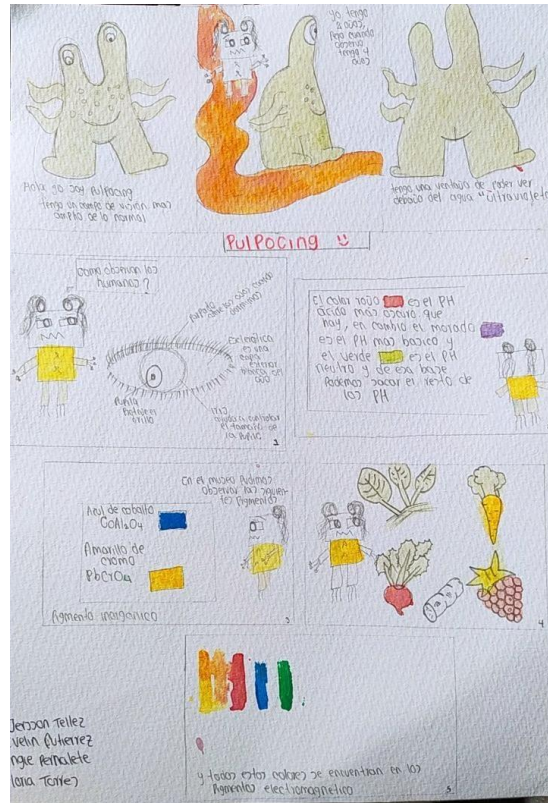 Hola yo soy Pulpocing
tengo un campo de visión mas
amplio de lo normal
yo tengo
2 ojos,
pero cuando
observo
tengo 4
ojos
tengo una ventaja de poder ver
debajo del agua "Ultravioleta
PulPocing
como observan los
humanos?
parpado
pupila
iris
ayuda a controlar
el tamaño de
la pupila
2
El color rojo es el PH
ácido más oscuro que
hay, en cambio el morado
es el PH mas basico y
el verde es el PH
neutro y de esa base
Podemos sacar el resto de
los PH
En el museo pudimos
observar los siguien-
tes pigmentos
Azul de cobalto
CoAl2O4
Amarillo de
cromo
PbCrO4
Pigmento inorgánico
3
4
y todos estos colores se encuentran en los
Pigmentos electromagnetico
5
Jersson Tellez
velin Gutierrez
ngie Pernalete
Torres